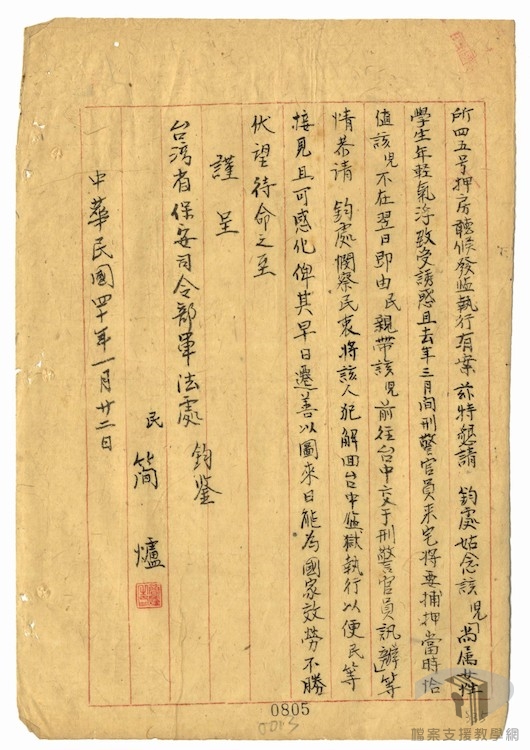 所四五号押房聽候發監執行有案茲特懇請　鈞處姑念該児尚属女性
學生年輕氣浮致受誘惑且去年三月間刑警官員来宅將要捕押當時恰
值該児不在翌日即由民親帶該児前往台中交于刑警官員訊辦」等
情恭請　鈞處憫察民衷將該人犯解回台中監獄執行以便民等
接見且可感化俾其早日遷善以圖来日能為國家效勞不勝
伏望待命之至
謹呈
台湾省保安司令部軍法處　鈞鉴
民　簡爐
中華民國四十年一月廿二日
0805
檔案支援教學網